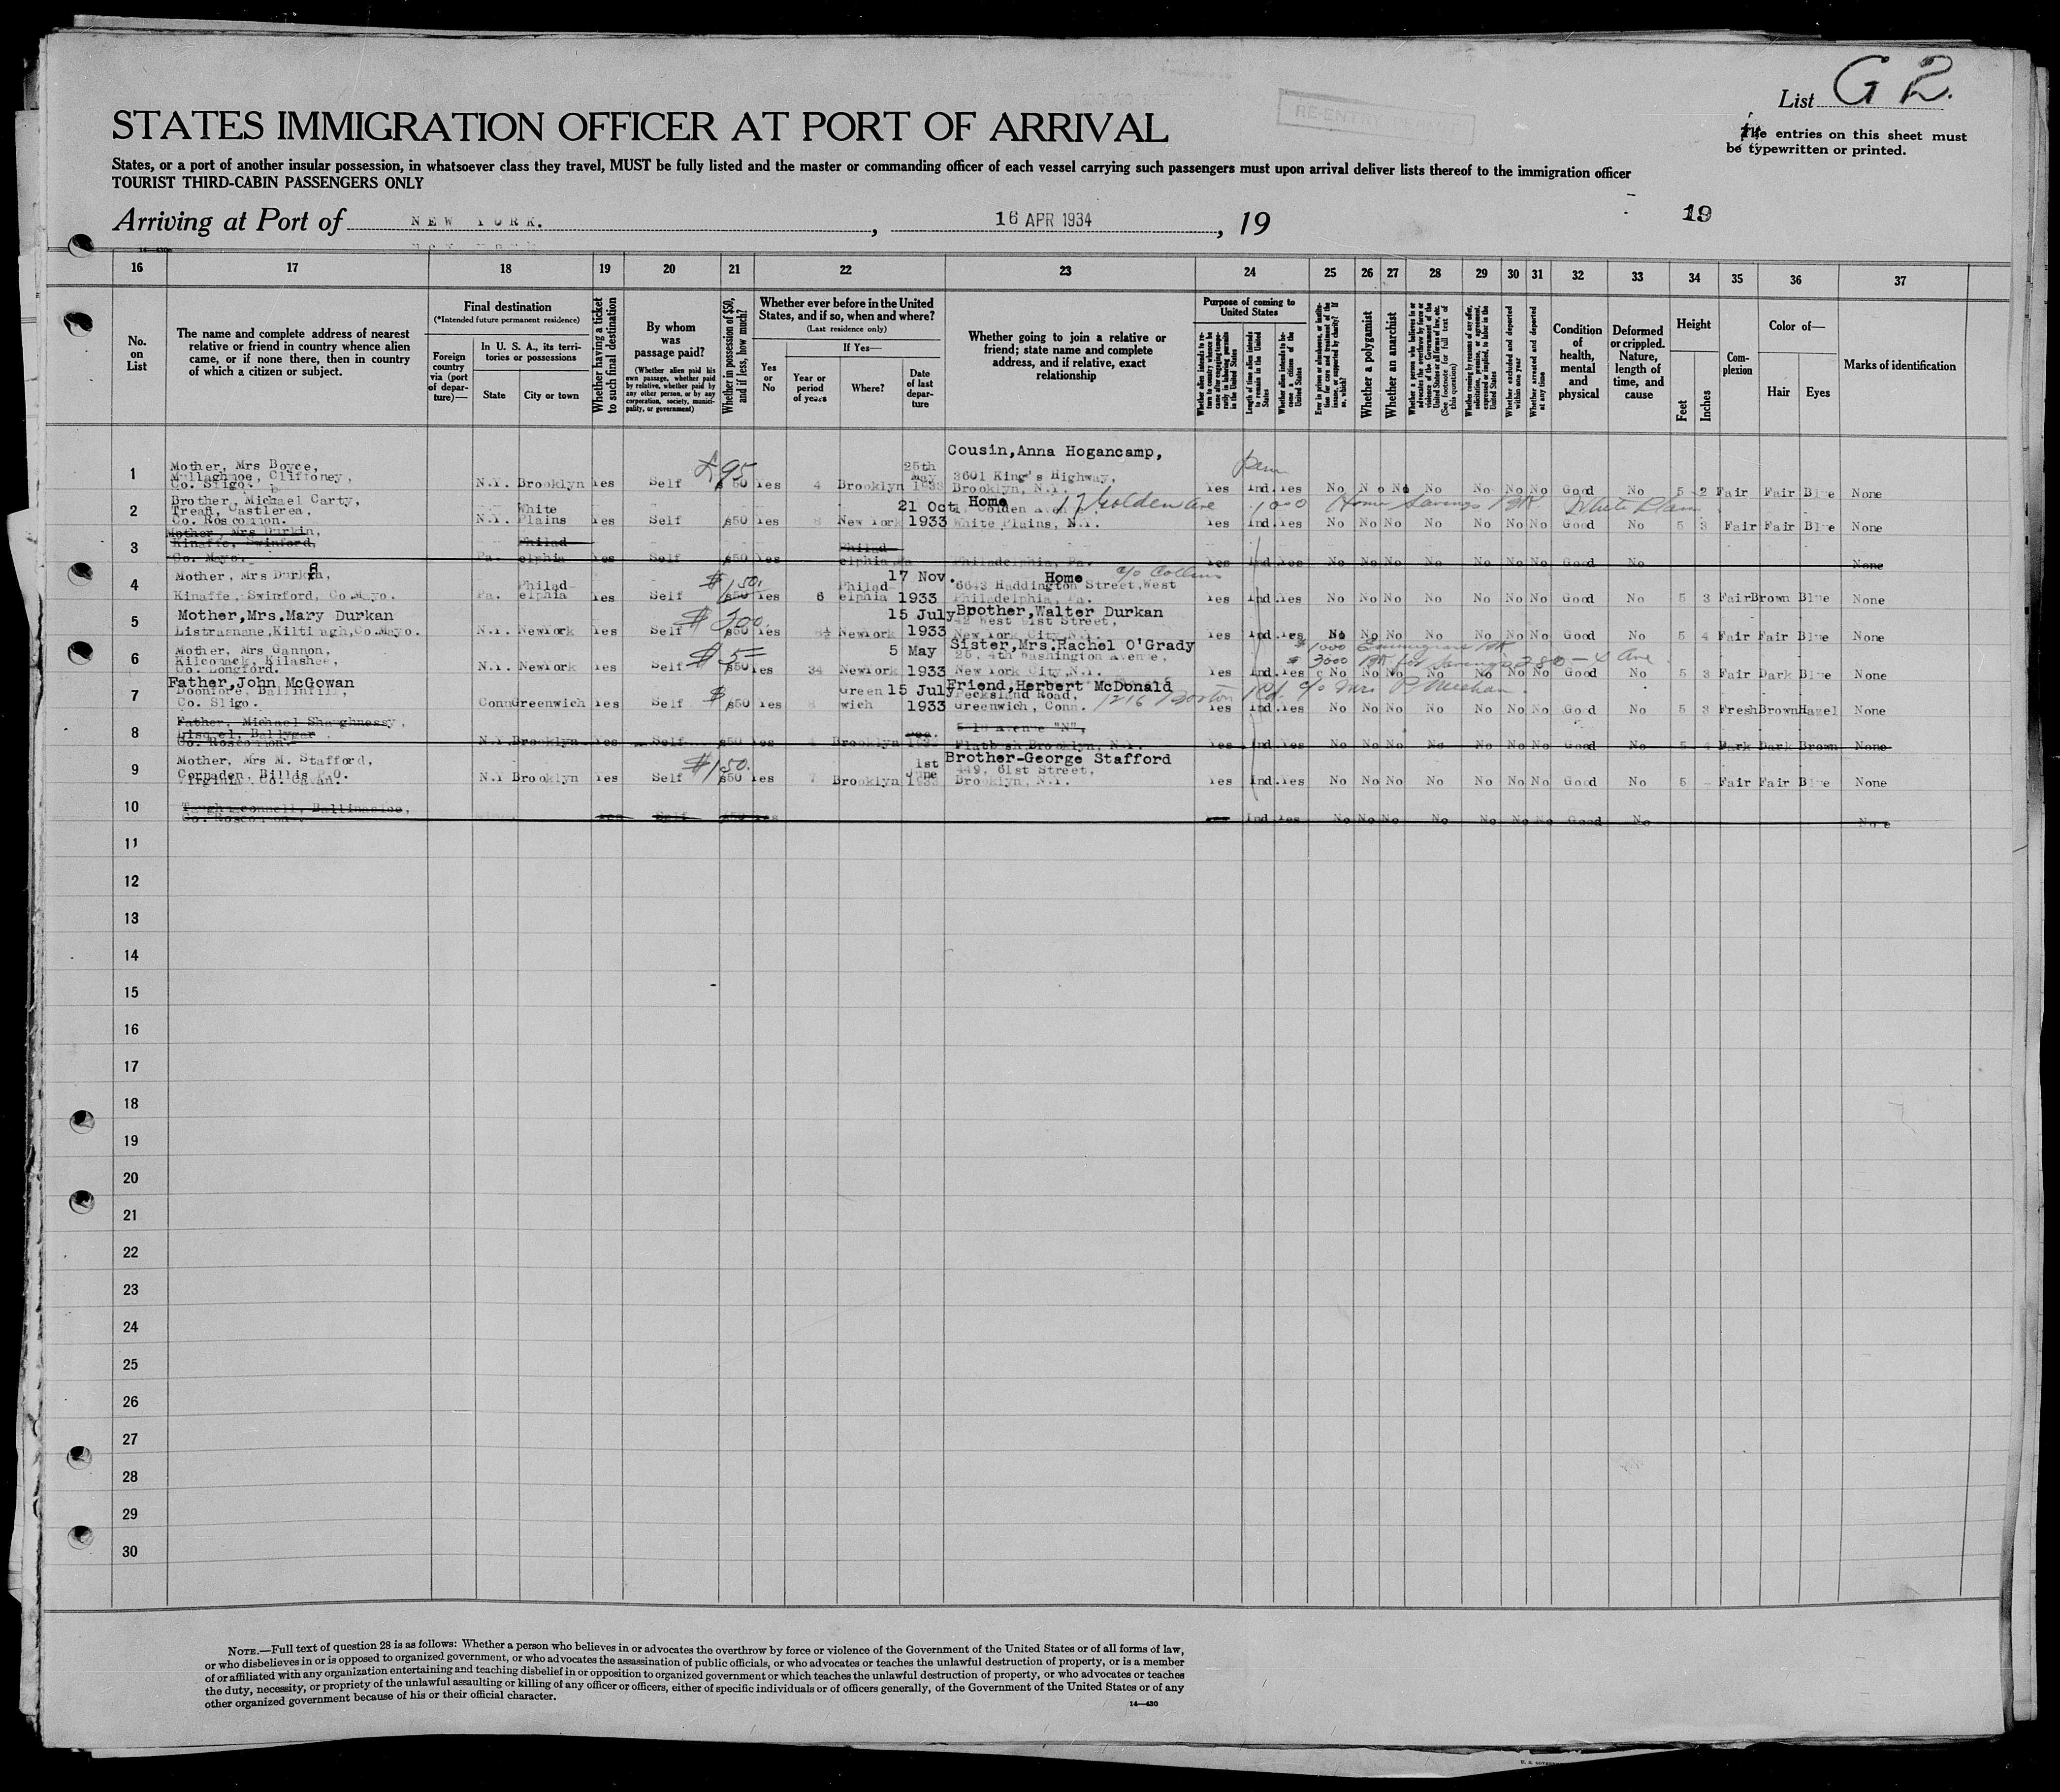 List G 2.
RE-ENTRY
STATES IMMIGRATION OFFICER AT PORT OF ARRIVAL
The entries on this sheet must
be typewritten or printed.
States, or a port of another insular possession, in whatsoever class they travel, MUST be fully listed and the master or commanding officer of each vessel carrying such passengers must upon arrival deliver lists thereof to the immigration officer
TOURIST THIRD-CABIN PASSENGERS ONLY
Arriving at Port of NEW YORK. , 16 APR 1934 , 19 19
16 17 18 19 20 21 22 23 24 25 26 27 28 29 30 31 32 33 34 35 36 37
No. on List
The name and complete address of nearest relative or friend in country whence alien came, or if none there, then in country of which a citizen or subject.
Final destination
(*Intended future permanent residence)
Foreign country via (port of departure)—
In U. S. A., its territories or possessions
State
City or town
Whether having a ticket to such final destination
By whom was passage paid?
(Whether alien paid his own passage, whether paid by relative, whether paid by any other person, or by any corporation, society, municipality, or government)
Whether in possession of $50, and if less, how much?
Whether ever before in the United States, and if so, when and where?
(Last residence only)
Yes or No
If Yes—
Year or period of years
Where?
Date of last departure
Whether going to join a relative or friend; state name and complete address, and if relative, exact relationship
Purpose of coming to United States
Whether alien intends to return to country whence he came after engaging temporarily in laboring pursuits in the United States
Length of time alien intends to remain in the United States
Whether alien intends to become a citizen of the United States
Ever in prison or almshouse, or institution for care and treatment of the insane, or supported by charity? If so, which?
Whether a polygamist
Whether an anarchist
Whether a person who believes in or advocates the overthrow by force or violence of the Government of the United States or all forms of law, etc. (See footnote for full text of this question)
Whether coming by reason of any offer, solicitation, promise, or agreement, expressed or implied, to labor in the United States
Whether excluded and deported within one year
Whether arrested and deported at any time
Condition of health, mental and physical
Deformed or crippled. Nature, length of time, and cause
Height
Feet
Inches
Complexion
Color of—
Hair
Eyes
Marks of identification
1 Mother, Mrs Boyce, Cliffoney, Co. Sligo. N.Y. Brooklyn Yes Self £95 $50 Yes 4 Brooklyn 25th May 1933 Cousin,Anna Hogancamp, 3601 King's Highway, Brooklyn, N.Y. Perm Yes Ind. Yes No No No No No No No Good No 5 2 Fair Fair Blue None
2 Brother, Michael Carty, Castlerea, Co. Roscommon. N.Y. White Plains Yes Self $50 Yes New York 21 Oct 1933 Home 17 Golden Ave White Plains, N.Y. 1000 Home Savings BK White Plains Yes Ind. Yes No No No No No No No Good No 5 3 Fair Fair Blue None
3 Mother, Mrs Durkin, Kinaffe, Swinford, Co. Mayo. Pa. Philadelphia Yes Self $50 Yes Philadelphia Philadelphia, Pa. Yes Ind. Yes No No No No No No No Good No None
4 Mother, Mrs Durkan, Kinaffe, Swinford, Co.Mayo. Pa. Philadelphia Yes Self $150. $50 Yes 6 Philadelphia 17 Nov. 1933 Home c/o Collins 6643 Haddington Street,West Philadelphia, Pa. Yes Ind. Yes No No No No No No No Good No 5 3 Fair Brown Blue None
5 Mother,Mrs.Mary Durkan Kiltimagh,Co.Mayo. N.Y. NewYork Yes Self $200. $50 Yes NewYork 15 July 1933 Brother,Walter Durkan 42 West 91st Street, New York City,N.Y. Yes Ind. Yes No No No No No No No Good No 5 4 Fair Fair Blue None
6 Mother, Mrs Gannon, Kilcomack, Kilashee, Co. Longford. N.Y. NewYork Yes Self $5 $50 Yes NewYork 5 May 1933 Sister,Mrs.Rachel O'Grady 25, 4th Washington Avenue, New York City,N.Y. $1000 Emmigrant BK $3000 BK for Savings 280 - 4 Ave Yes Ind. Yes No No No No No No No Good No 5 3 Fair Dark Blue None
7 Father,John McGowan Doonfore, Co. Sligo. Conn Greenwich Yes Self $50 Yes Greenwich 15 July 1933 Friend,Herbert McDonald Pecksland Road, Greenwich, Conn. 1216 Boston Rd. c/o Mrs P. Meehan Yes Ind. Yes No No No No No No No Good No 5 3 Fresh Brown Hazel None
8 Father, Michael Shaughnessy, Ballygar, Co. Roscommon. N.Y. Brooklyn Yes Self $50 Yes Brooklyn Avenue "N", Flatbush,Brooklyn, N.Y. Yes Ind. Yes No No No No No No No Good No 5 4 Dark Dark Brown None
9 Mother, Mrs M. Stafford, Cornaden, Billis P.O. Virginia, Co. Cavan. N.Y Brooklyn Yes Self $150. $50 Yes 7 Brooklyn 1st June 1933 Brother-George Stafford 449, 61st Street, Brooklyn, N.Y. Yes Ind. Yes No No No No No No No Good No 5 Fair Fair Blue None
10 Taughmaconnell, Ballinasloe, Co. Roscommon. Yes Self $50 Yes Yes Ind. Yes No No No No No No No Good No None
11
12
13
14
15
16
17
18
19
20
21
22
23
24
25
26
27
28
29
30
NOTE.—Full text of question 28 is as follows: Whether a person who believes in or advocates the overthrow by force or violence of the Government of the United States or of all forms of law,
or who disbelieves in or is opposed to organized government, or who advocates the assassination of public officials, or who advocates or teaches the unlawful destruction of property, or is a member
of or affiliated with any organization entertaining and teaching disbelief in or opposition to organized government or which teaches the unlawful destruction of property, or who advocates or teaches
the duty, necessity, or propriety of the unlawful assaulting or killing of any officer or officers, either of specific individuals or of officers generally, of the Government of the United States or of any
other organized government because of his or their official character.
14—430